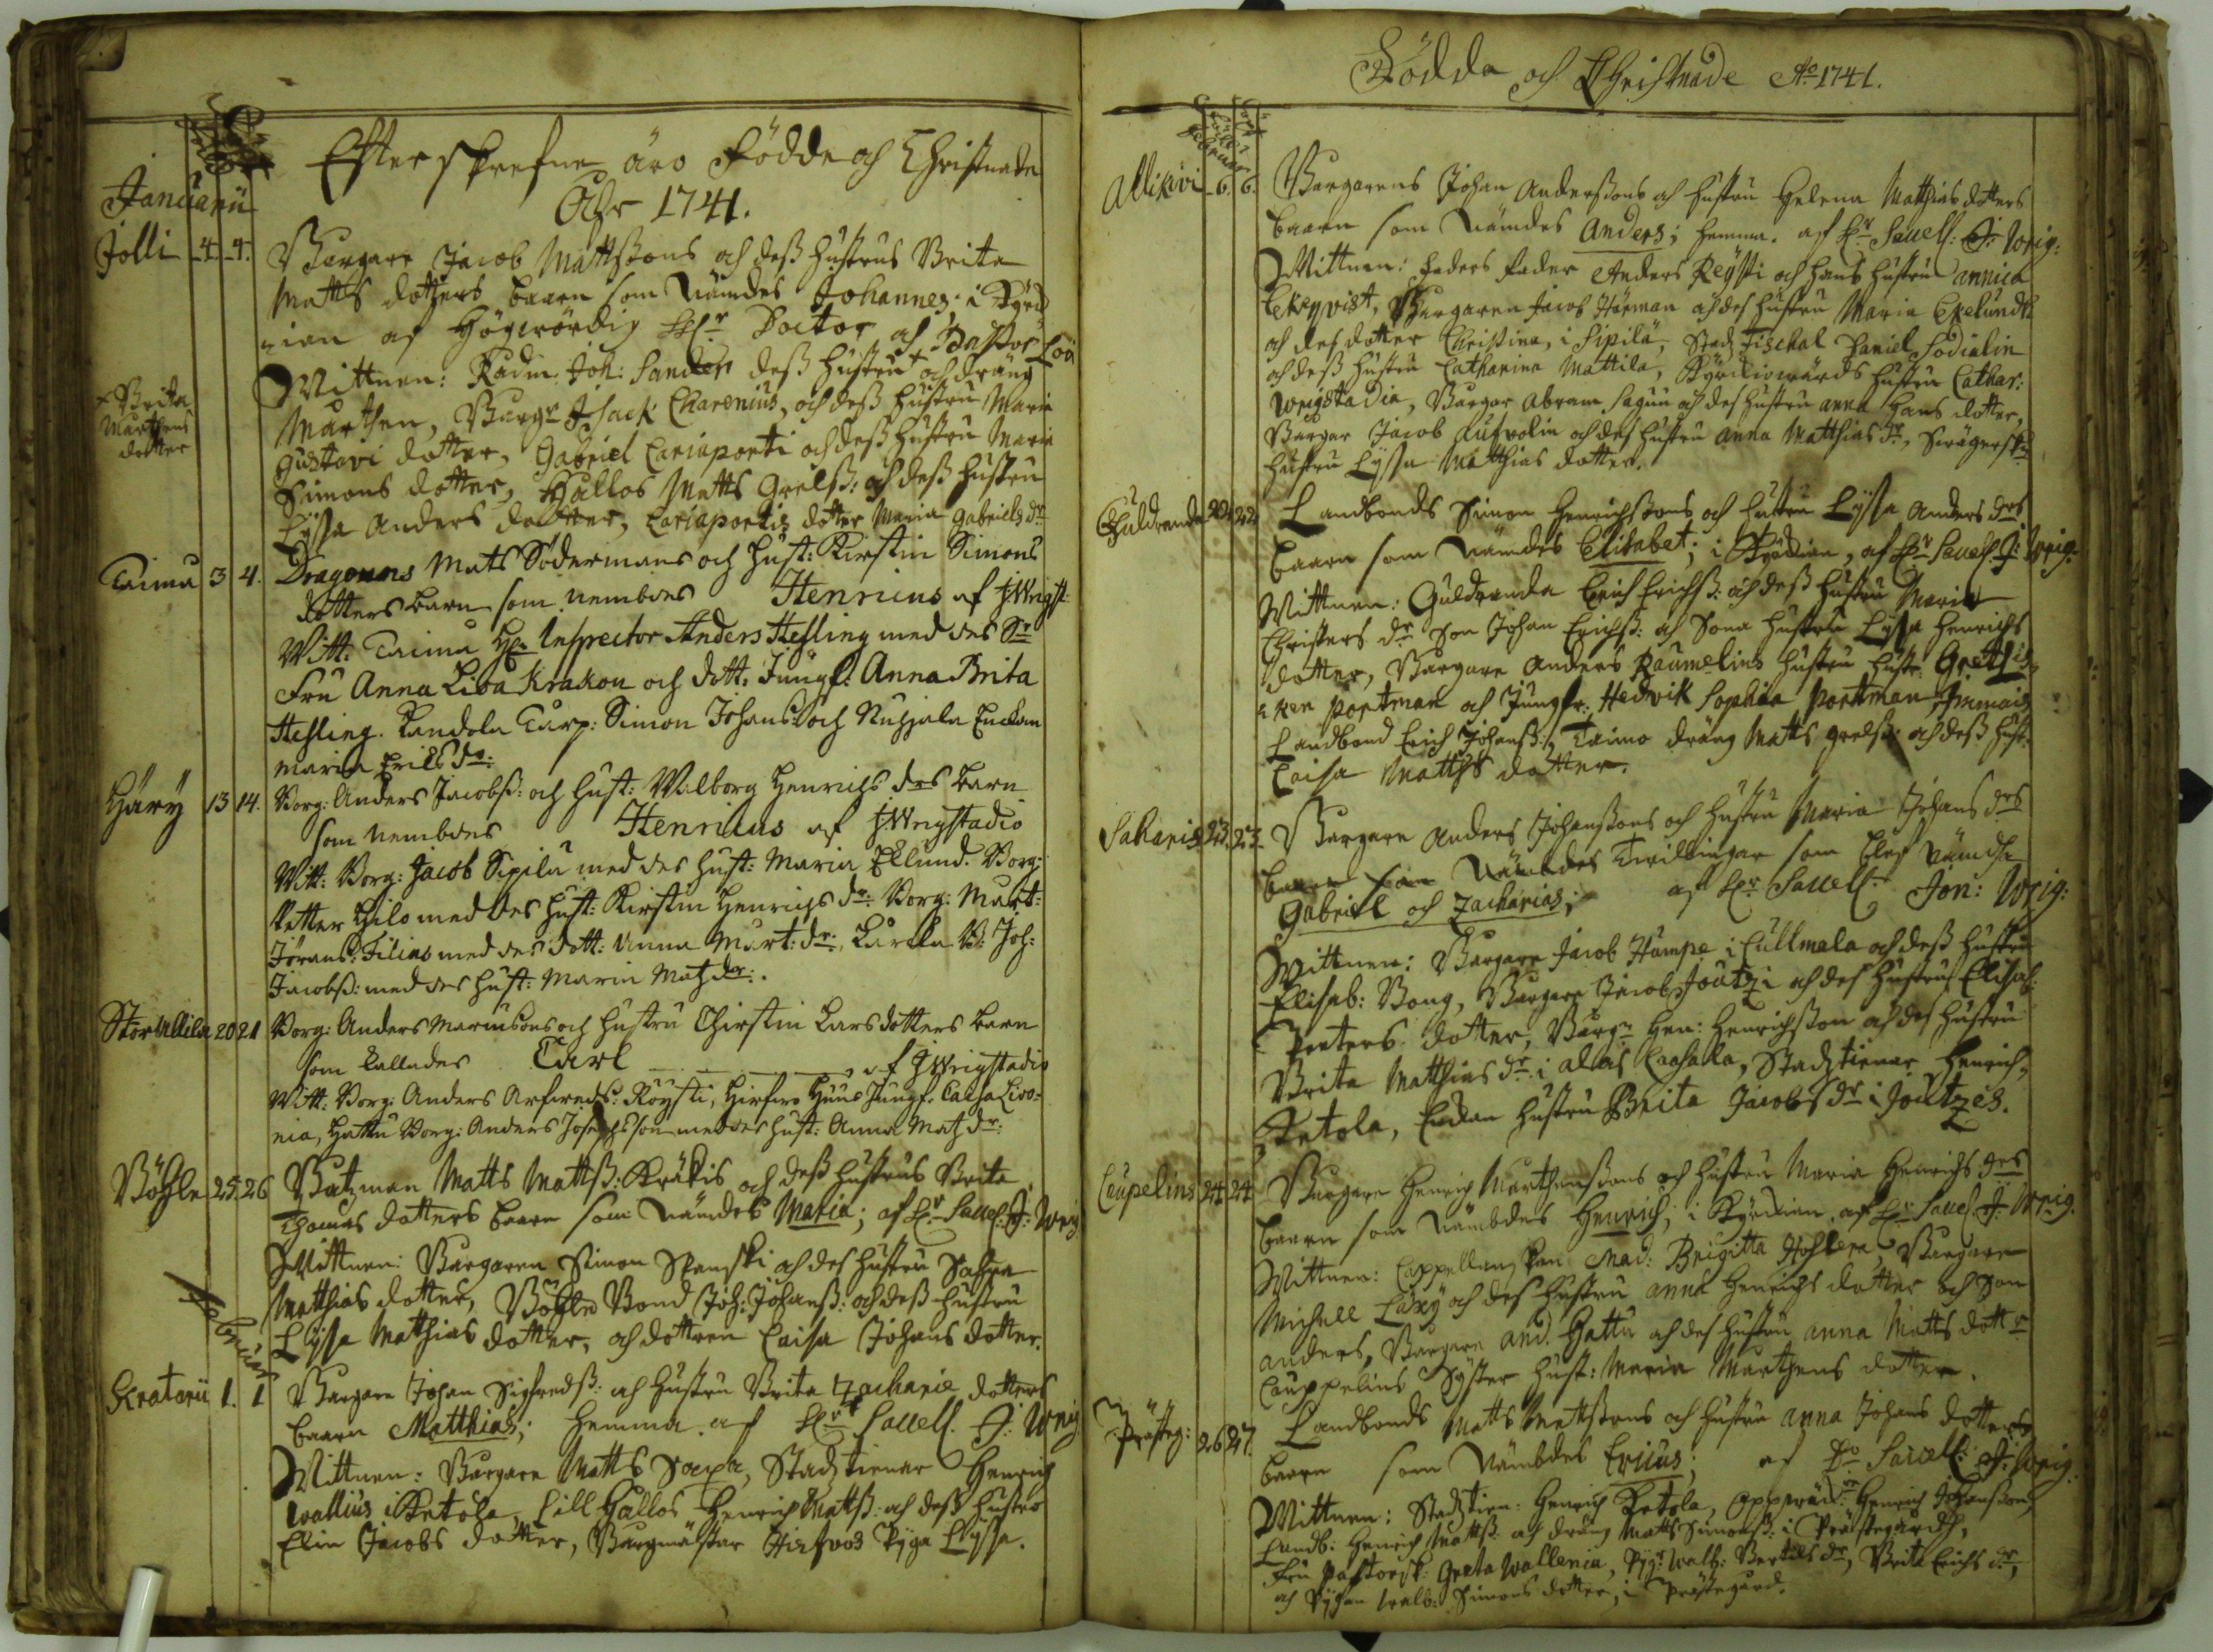 Efterskrefne äro Födde och Christnade
Åhr 1741.
Januarii
Jolli 4. 4. Borgare Jacob Mattssons och dess hustrus Brita
Matts dotters baarn som nämdes Johannes; i Kyrc¬
kian af Högwördig H:r Doctor och Pastor
Wittnen: Rådm: Joh: Sander dess hustru + och dräng
+ Brita
Marthens
dotter
Marthen, Borg:r Isack Charenius, och dess hustru Maria
Gustavi dotter, Gabriel Cariaporti och dess hustru Maria
Simons dotter, Hallos Matts Grelss: och dess hustru
Lijsa Anders dotter, Cariaportis dotter Maria Gabriels d:r
Taimu 3 4. Dragouns Mats Södermans och hust: Kirstin Simons
dotters barn som nembdes Henricus af J Wrigst:
Witt: Taimu H:r Inspector Anders Hesling med des K:r
Fru Anna Lisa Krakou och dott: Jungf: Anna Brita
Hesling. Landola Torp: Simon Johans: och Nuhjala Enckan
Maria Erils dr:
Häry 13 14. Borg: Anders Jacobss: och hust: Walborg Henrichs drs barn
som nembdes Henricus af J Wrigstadio
Witt: Borg: Jacob Sipilä med des hust: Maria Eklund. Borg:
Petter Hilo med des hust: Kirstin Henrichs dr: Borg: Mart:
Jörans: Filius med des dott: Anna Mart: dr:, B: Joh:
Jacobss: med des hust: Maria Matz dr:.
Stor Allila 20 21 Borg: Anders Mariusons och hustru Chirstin Lars dotters barn
som kallades Carl af J Wrigstadio
Witt: Borg: Anders Arfweds: Röysti, Hirfwo Huus Jungf: Caisa Livo¬
nia, Hattu Borg: Anders Josephsson med des hust: Anna Matz dr:
Böhle 25 26 Båtzman Matts Mattss: Kräkis och dess hustrus Brita
Thomas dotters baarn som nämdes Maria; af H:r Sacell: J: Wrig
Wittnen: Borgaren Simon och des hustru Safia
Matthias dotter, Böhle Bond Joh: Johanss: och dess hustru
Lijsa Mathias dotter, och dottren Caisa Johans dotter.
Februarii
Kratarii 1. 1 Borgare Johan Sigfredss: och hustru Brita Zacharie dotters
baarn Matthias; hemma af H:r Sacell. J: Wrig
Wittnen: Borgare Matts Sorpa, Stadztienar Henrich
Wallius i Ketola, Lill Hallos Henrich Mattss: och dess hustro
Elin Jacobs dotter, Borgmästar Hirfvos Pyga Lijsa.
Födda och Christnade A:o 1741.
Födde
Februarii
Allikivi 6. 6. Borgarens Johan Anderssons och hustru Helena Matthias dotters
baarn som nämdes Anders; hemma. af H:r Sacell: J: Wrig:
Wittnen: faders fader Anders Reijsti och hans hustru Annica
Ekeqvist, Borgaren Jacob Hörman och des hustru Maria Ekelundh
och des dotter Christina, i Sipilä, Stadz Fischal Daniel Sodialin
och dess hustru Catharina Mattila, Kyrckiowärds hustru Cathar:
Wrigstadia, Borgar Abram Sagun och des hustru Anna Hans dotter,
Borgar Jacob och des hustru Anna Matthias dr, Swägersk:
hustru Lijsa Matthias dotter.
Guldranda 20 22 Landbonds Simon Henrichssons och hustru Lijsa Anders drs
baarn som nämdes Elisabet; i Kyrckian, af H:r Sacell: J: Wrig.
Wittnen: Guldranda Erich Erichss: och dess hustru Maria
Christers dr Son Johan Erichss: och Sona hustru Lijsa Henrichs
dotter, Borgare Anders Raumelins hustru hustr: Gret
Portman och Jungfr: Hedvik Sophia Portman,
Landbond Erich Johanss:, Taimo dräng Matts Grelss: och dess hust:
Caisa Matths dotter.
Sakaris 23. 23. Borgare Anders Johanssons och hustru Maria Johans drs
baarn som nämdes Twillingar som blef nämde
Gabriel och Zacharias; af H:r Sacell: Jon: Wrig:
Wittnen: Borgare Jacob Humpe i Cullmala och dess hustru
Elisab: Bong, Borgare Jacob Joutzi och des hustru Elisab:
Peeters dotter, Borg:r Hen: Henrichsson och des hustru
Brita Matthias dr: i Alas Caahala, Stadztienar Henrich,
Ketola, Enckan hustru Brita Jacobs dr i Joutzes.
Caupelins 24 24 Borgare Henrich Marthenssons och hustru Maria Henrichs drs
baarn som nämbdes Henrich; i Kyrckian, af H:r Sacel J: Wrig.
Wittnen: Cappellanskan Mad: Brigitta Hohlera Borgare
Michell Lury och des hustru Anna Henrichs dotter och Son
Anders, Borgare And: Hattu och des hustru Anna Matts dott:r
Cauppelins Syster hust: Maria Marthens dotter.
Prästeg: 26 27. Landbonds Matts Mattssons och hustru Anna Johans dotters
baarn som nämbdes Ericus; af H:r Sacell: J: Wrig.
Wittnen: Stadztien: Henrich Ketola, Henrich Johansson,
Landb: Henrich Mattss: och dräng Matts Simonss: i Prästegårdh,
Fru Pastorsk: Greta Wallenia, Pyg: Walb: Bertils dr, Brita Erichs dr,
och Pygan Walb: Simons dotter, i Prästegård.